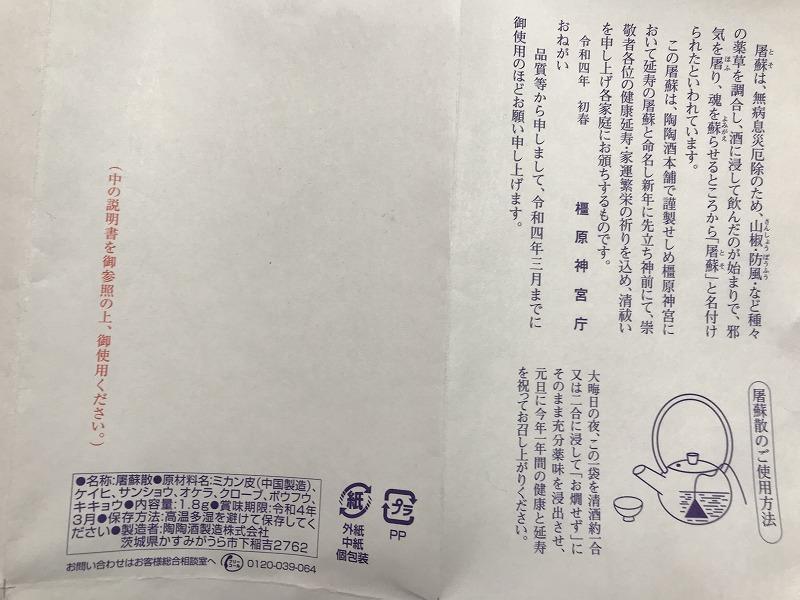 屠蘇は、無病息災厄除のため、山椒・防風・など種々
の薬草を調合し、酒に浸して飲んだのが始まりで、邪
気を屠り、魂を蘇らせるところから「屠蘇」と名付け
られたといわれています。
この屠蘇は、陶陶酒本舗で謹製せしめ橿原神宮に
おいて延寿の屠蘇と命名し新年に先立ち神前にて、崇
敬者各位の健康延寿・家運繁栄の祈りを込め、清祓い
を申し上げ各家庭にお頒ちするものです。
令和四年 初春
橿原神宮庁
おねがい
品質等から申しまして、令和四年三月までに
御使用のほどお願い申し上げます。
屠蘇散のご使用方法
大晦日の夜、この一袋を清酒約一合
又は二合に浸して「お燗せず」に
そのまま充分薬味を浸出させ、
元旦に今年一年間の健康と延寿
を祝ってお召し上がりください。
(中の説明書を御参照の上、御使用ください。)
●名称:屠蘇散●原材料名:ミカン皮(中国製造)、
ケイヒ、サンショウ、オケラ、クローブ、ボウフウ、
キキョウ●内容量:1.8g●賞味期限:令和4年
3月●保存方法:高温多湿を避けて保存してく
ださい●製造者:陶陶酒製造株式会社
茨城県かすみがうら市下稲吉2762
お問い合わせはお客様総合相談室へ 0120-039-064
紙
外紙
中紙
個包装
プラ
PP